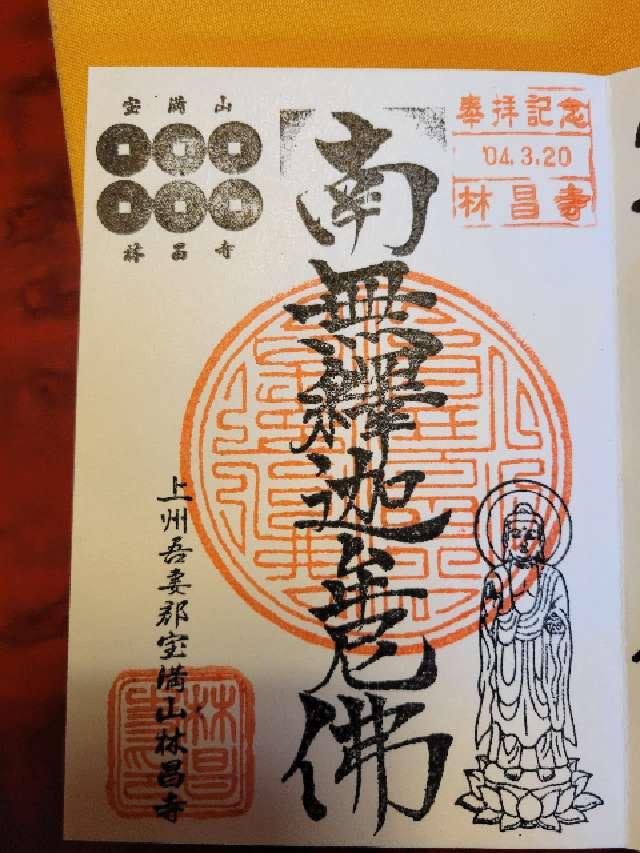 奉拝記念
'04.3.20
林昌寺
南無釋迦牟尼佛
宝満山
林昌寺
上州吾妻郡宝満山林昌寺
林昌寺印